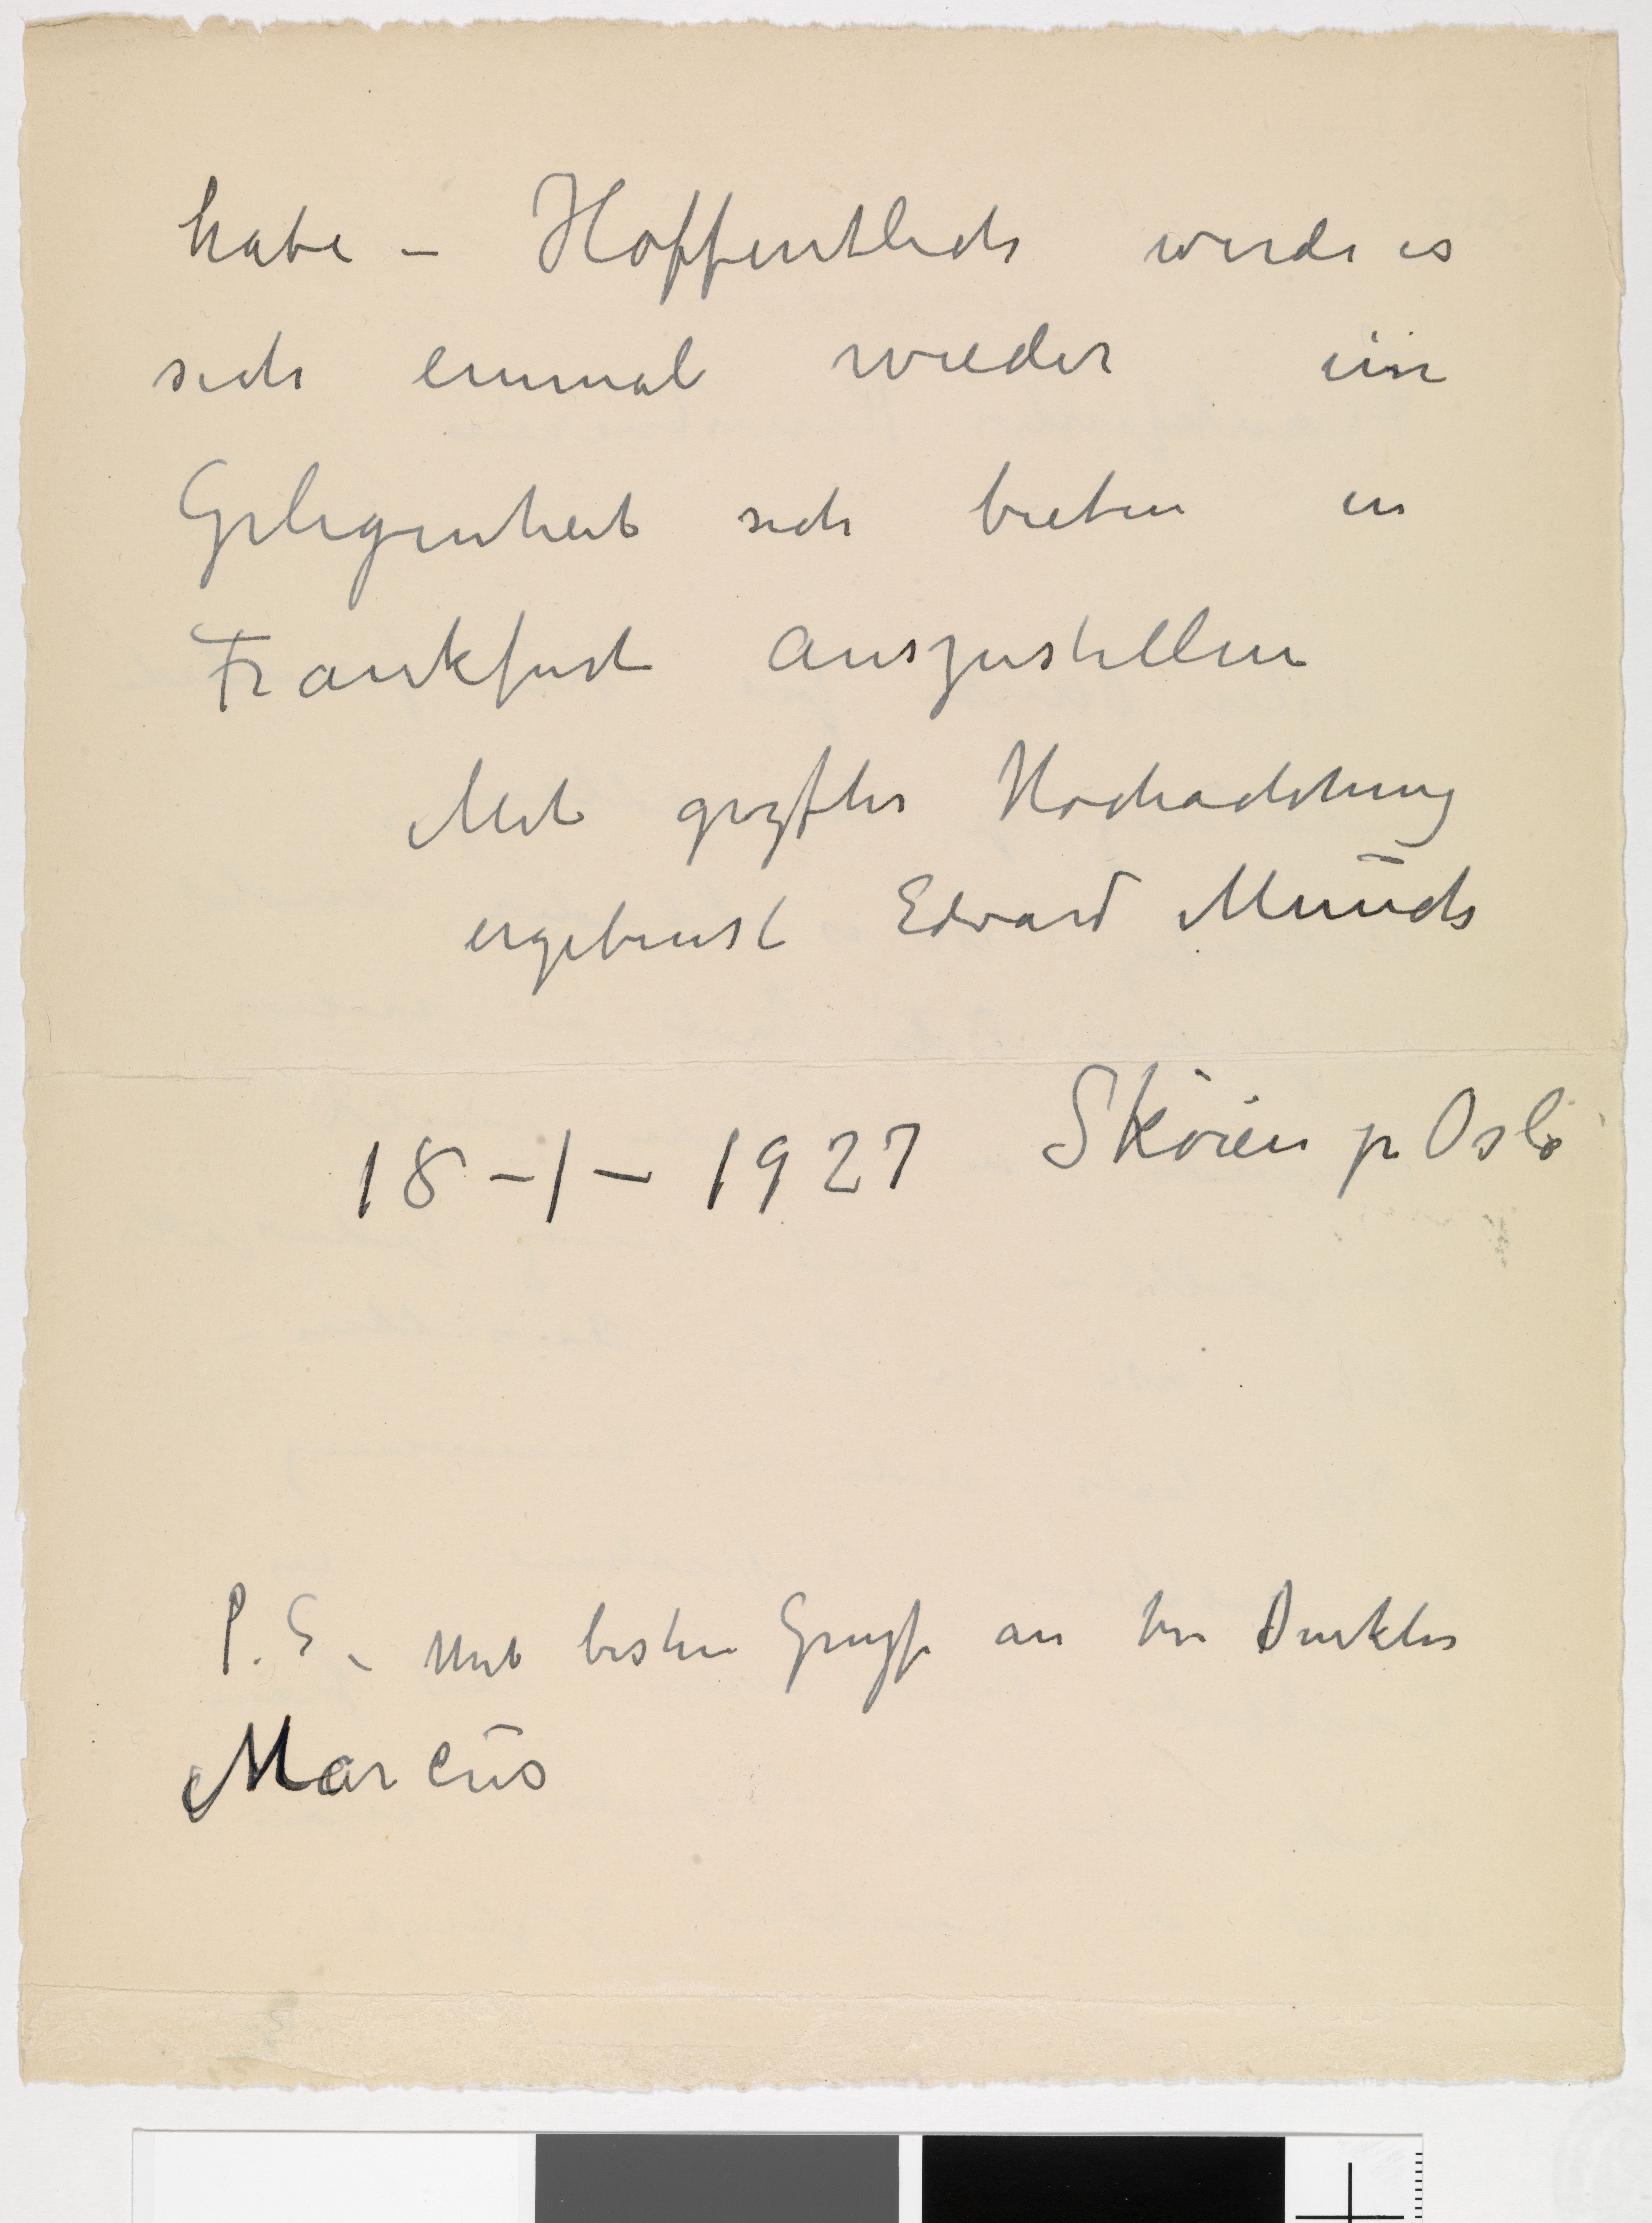 habe – Hoffentlich werde es
sich einmal wieder ein
Gelegenheit sich bieten in
Frankfurt auszustellen
Mit grosster Hochachtung
ergebenst Edvard Munch
18 – 1 – 1927 Sköien pr Oslo
P.S – Mit besten Gruss an Direktor
Marcus